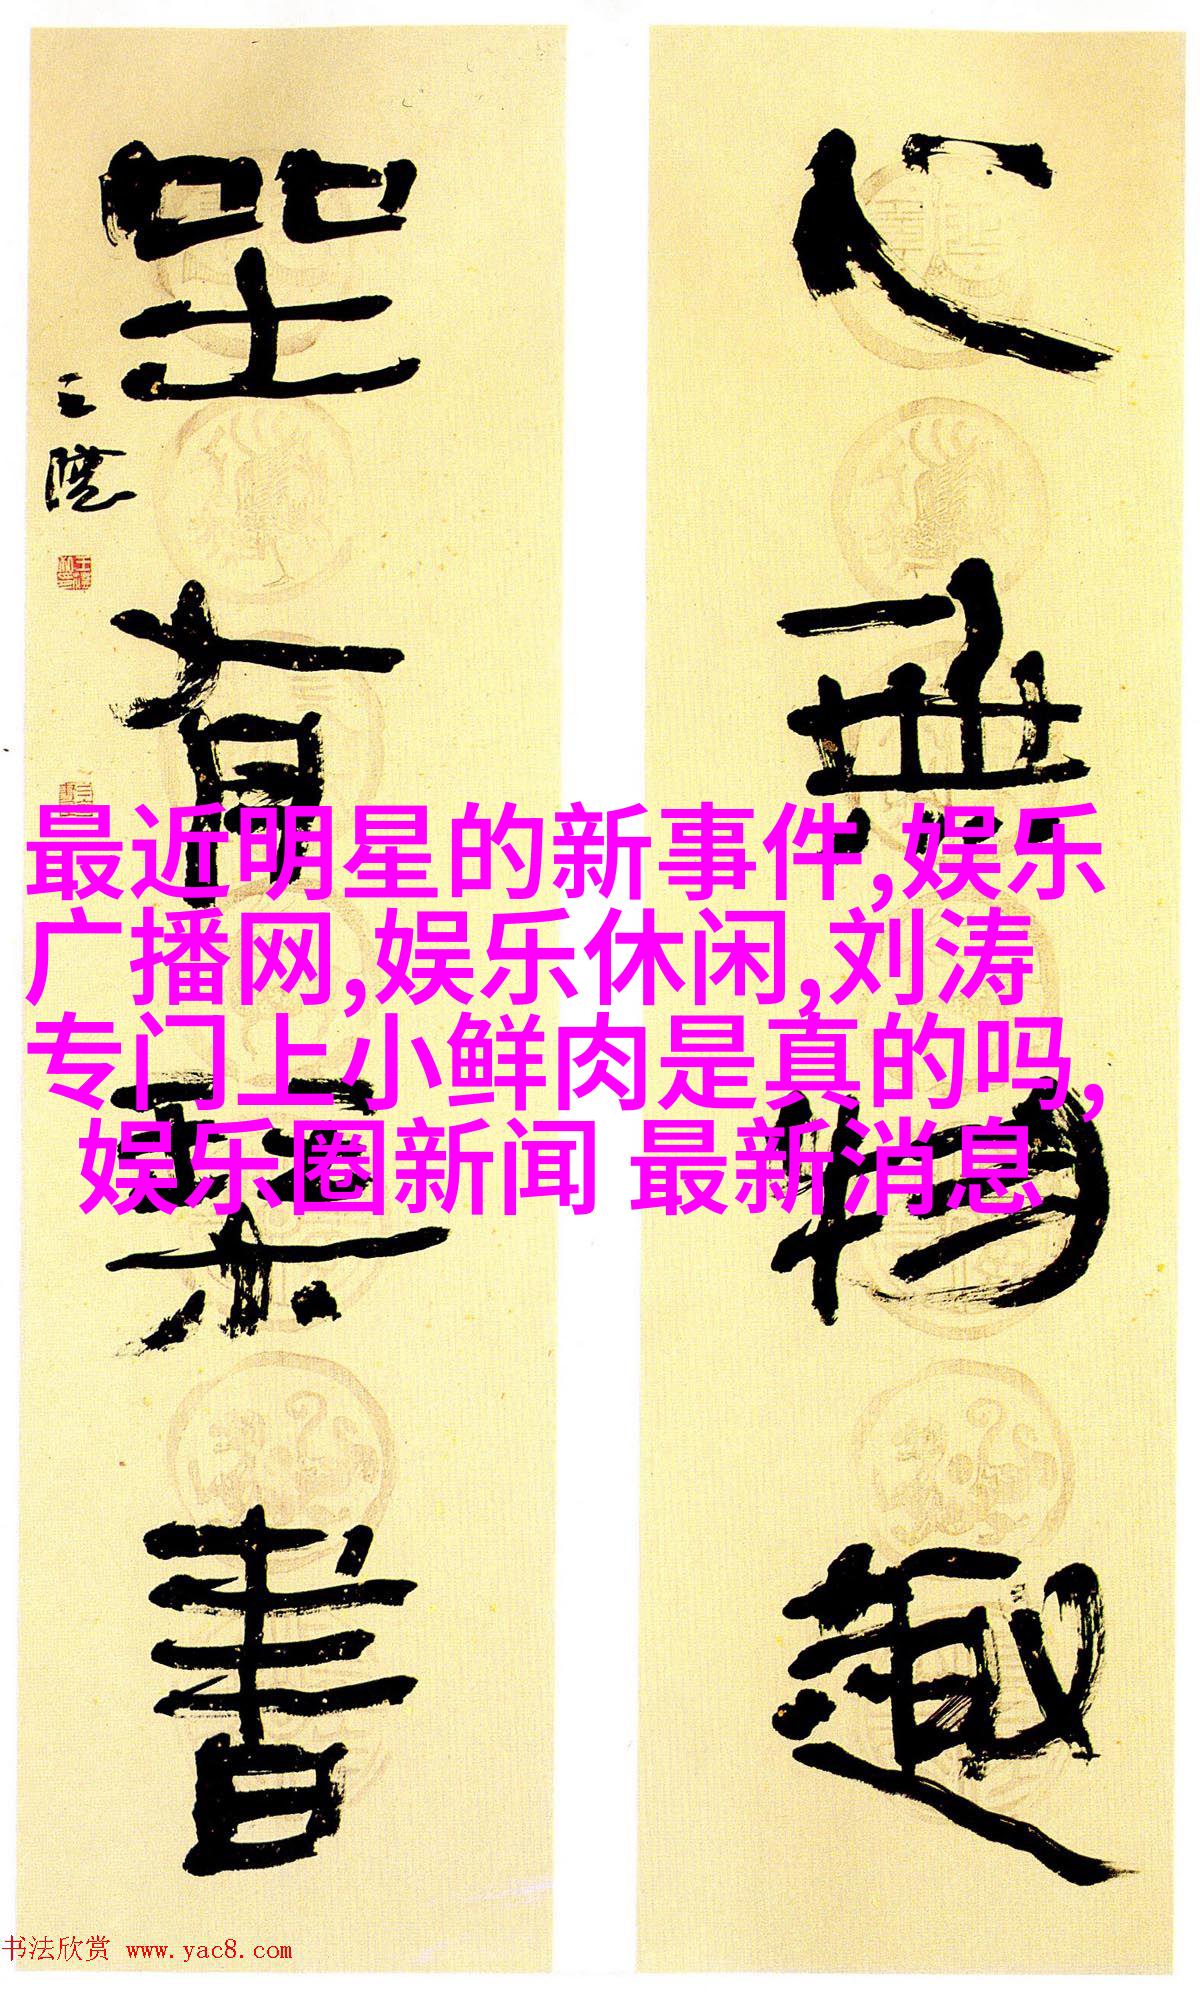 心無物趣
坐有琴書
最近明星的新事件,娱乐
广播网,娱乐休闲,刘涛
专门上小鲜肉是真的吗,
娱乐圈新闻 最新消息
书法欣赏 www.yac8.com